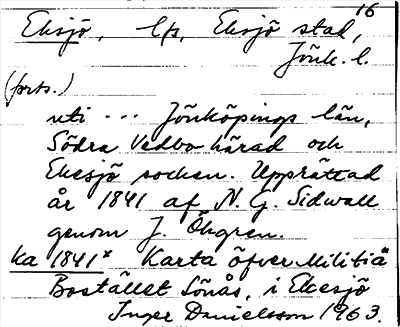 16
Eksjö, lfs, Eksjö stad,
Jönk. l.
(forts.)
uti ... Jönköpings län,
Södra Vedbo härad och
Ekesjö socken. Upprättad
år 1841 af N. G. Sidwall
genom J. Öhgren.
ka 1841* Karta öfver Militiä
Bostället Sönås, i Ekesjö
Inger Danielsson 1963.